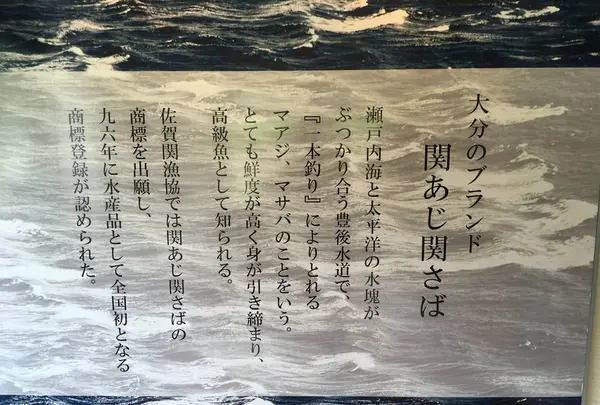 大分のブランド
関あじ関さば
瀬戸内海と太平洋の水塊が
ぶつかり合う豊後水道で、
『一本釣り』によりとれる
マアジ、マサバのことをいう。
とても鮮度が高く身が引き締まり、
高級魚として知られる。
佐賀関漁協では関あじ関さばの
商標を出願し、
九六年に水産品として全国初となる
商標登録が認められた。